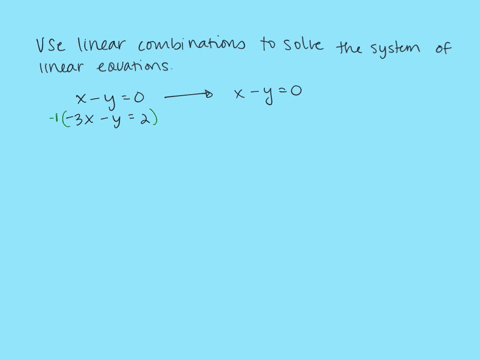 Use linear combinations to solve the system of
linear equations.
x - y = 0 → x - y = 0
-1(-3x - y = 2)